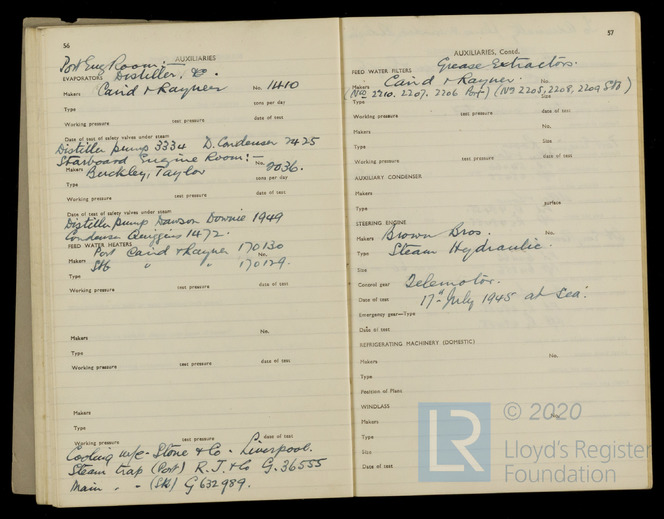 56
AUXILIARIES
Port Eng Room:—
EVAPORATORS Distiller, &c.
Makers Caird & Rayner No. 1410
Type tons per day
Working pressure test pressure date of test
Date of test of safety valves under steam
Distiller pump 3334 D. Condenser 2425
Starboard Engine Room:—
Makers Buckley, Taylor No. 9036.
Type tons per day
Working pressure date of test
Date of test of safety valves under steam
Distiller pump Dawson Downie 1949
Condenser Quiggins 1472.
FEED WATER HEATERS
Port Caird & Rayner 170130
Makers Stb " " No. 170129.
Type
Working pressure test pressure date of test
Makers No.
Type
Working pressure test pressure date of test
Makers
Type
Working pressure test pressure date of test
Cooling w/c - Stone & Co - Liverpool.
Steam trap (Port) R.J. & Co G. 36555
Main " " (Stb) G 632989.
57
AUXILIARIES, Contd.
Grease Extractors.
FEED WATER FILTERS
Makers Caird & Rayner. No.
(Nos 2210, 2207, 2206 Port) (Nos 2205, 2208, 2209 Stb)
Type Size
Working pressure test pressure date of test
Makers No.
Type Size
Working pressure test pressure date of test
AUXILIARY CONDENSER
Makers
Type surface
STEERING ENGINE
Makers Brown Bros. No.
Type Steam Hydraulic.
Size
Control gear Telemotor.
Date of test 17th July 1945 at Sea.
Emergency gear—Type
Date of test
REFRIGERATING MACHINERY (DOMESTIC)
Makers No.
Type
Position of Plant
WINDLASS
Makers No.
Type
Size
Date of test
LR © 2020
Lloyd's Register
Foundation